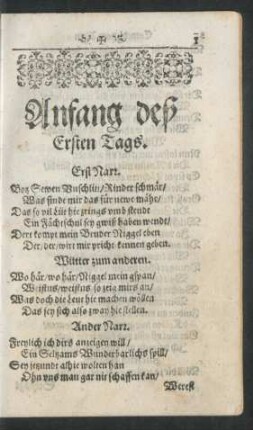 1
Anfang deß
Ersten Tags.
Erst Narr.
Potz Sewen Vuschlin/ Rinder schmär/
Was sinde mir das für newe mähr/
Das so vil Lüt hie zrings vmb stendt
Ein schul sey gwiß haben wendt/
Dort kompt mein Bruder Niggel eben
Der/ der/ wirt mir pricht kennen geben.
Witter zum anderen.
Wo här/ wo här/ Niggel mein gspan/
Weistus/ weistus so zeig mirs an/
Was doch die Leut hie machen wöllen
Das sey sich also zway hie stellen.
Ander Narr.
Freylich ich dirs anzeigen will/
Ein Seltzams Wunderbarlichs spill/
Sey jetzundt alhie wolten han
Ohn vns man gar nit schaffen kan/
Werest